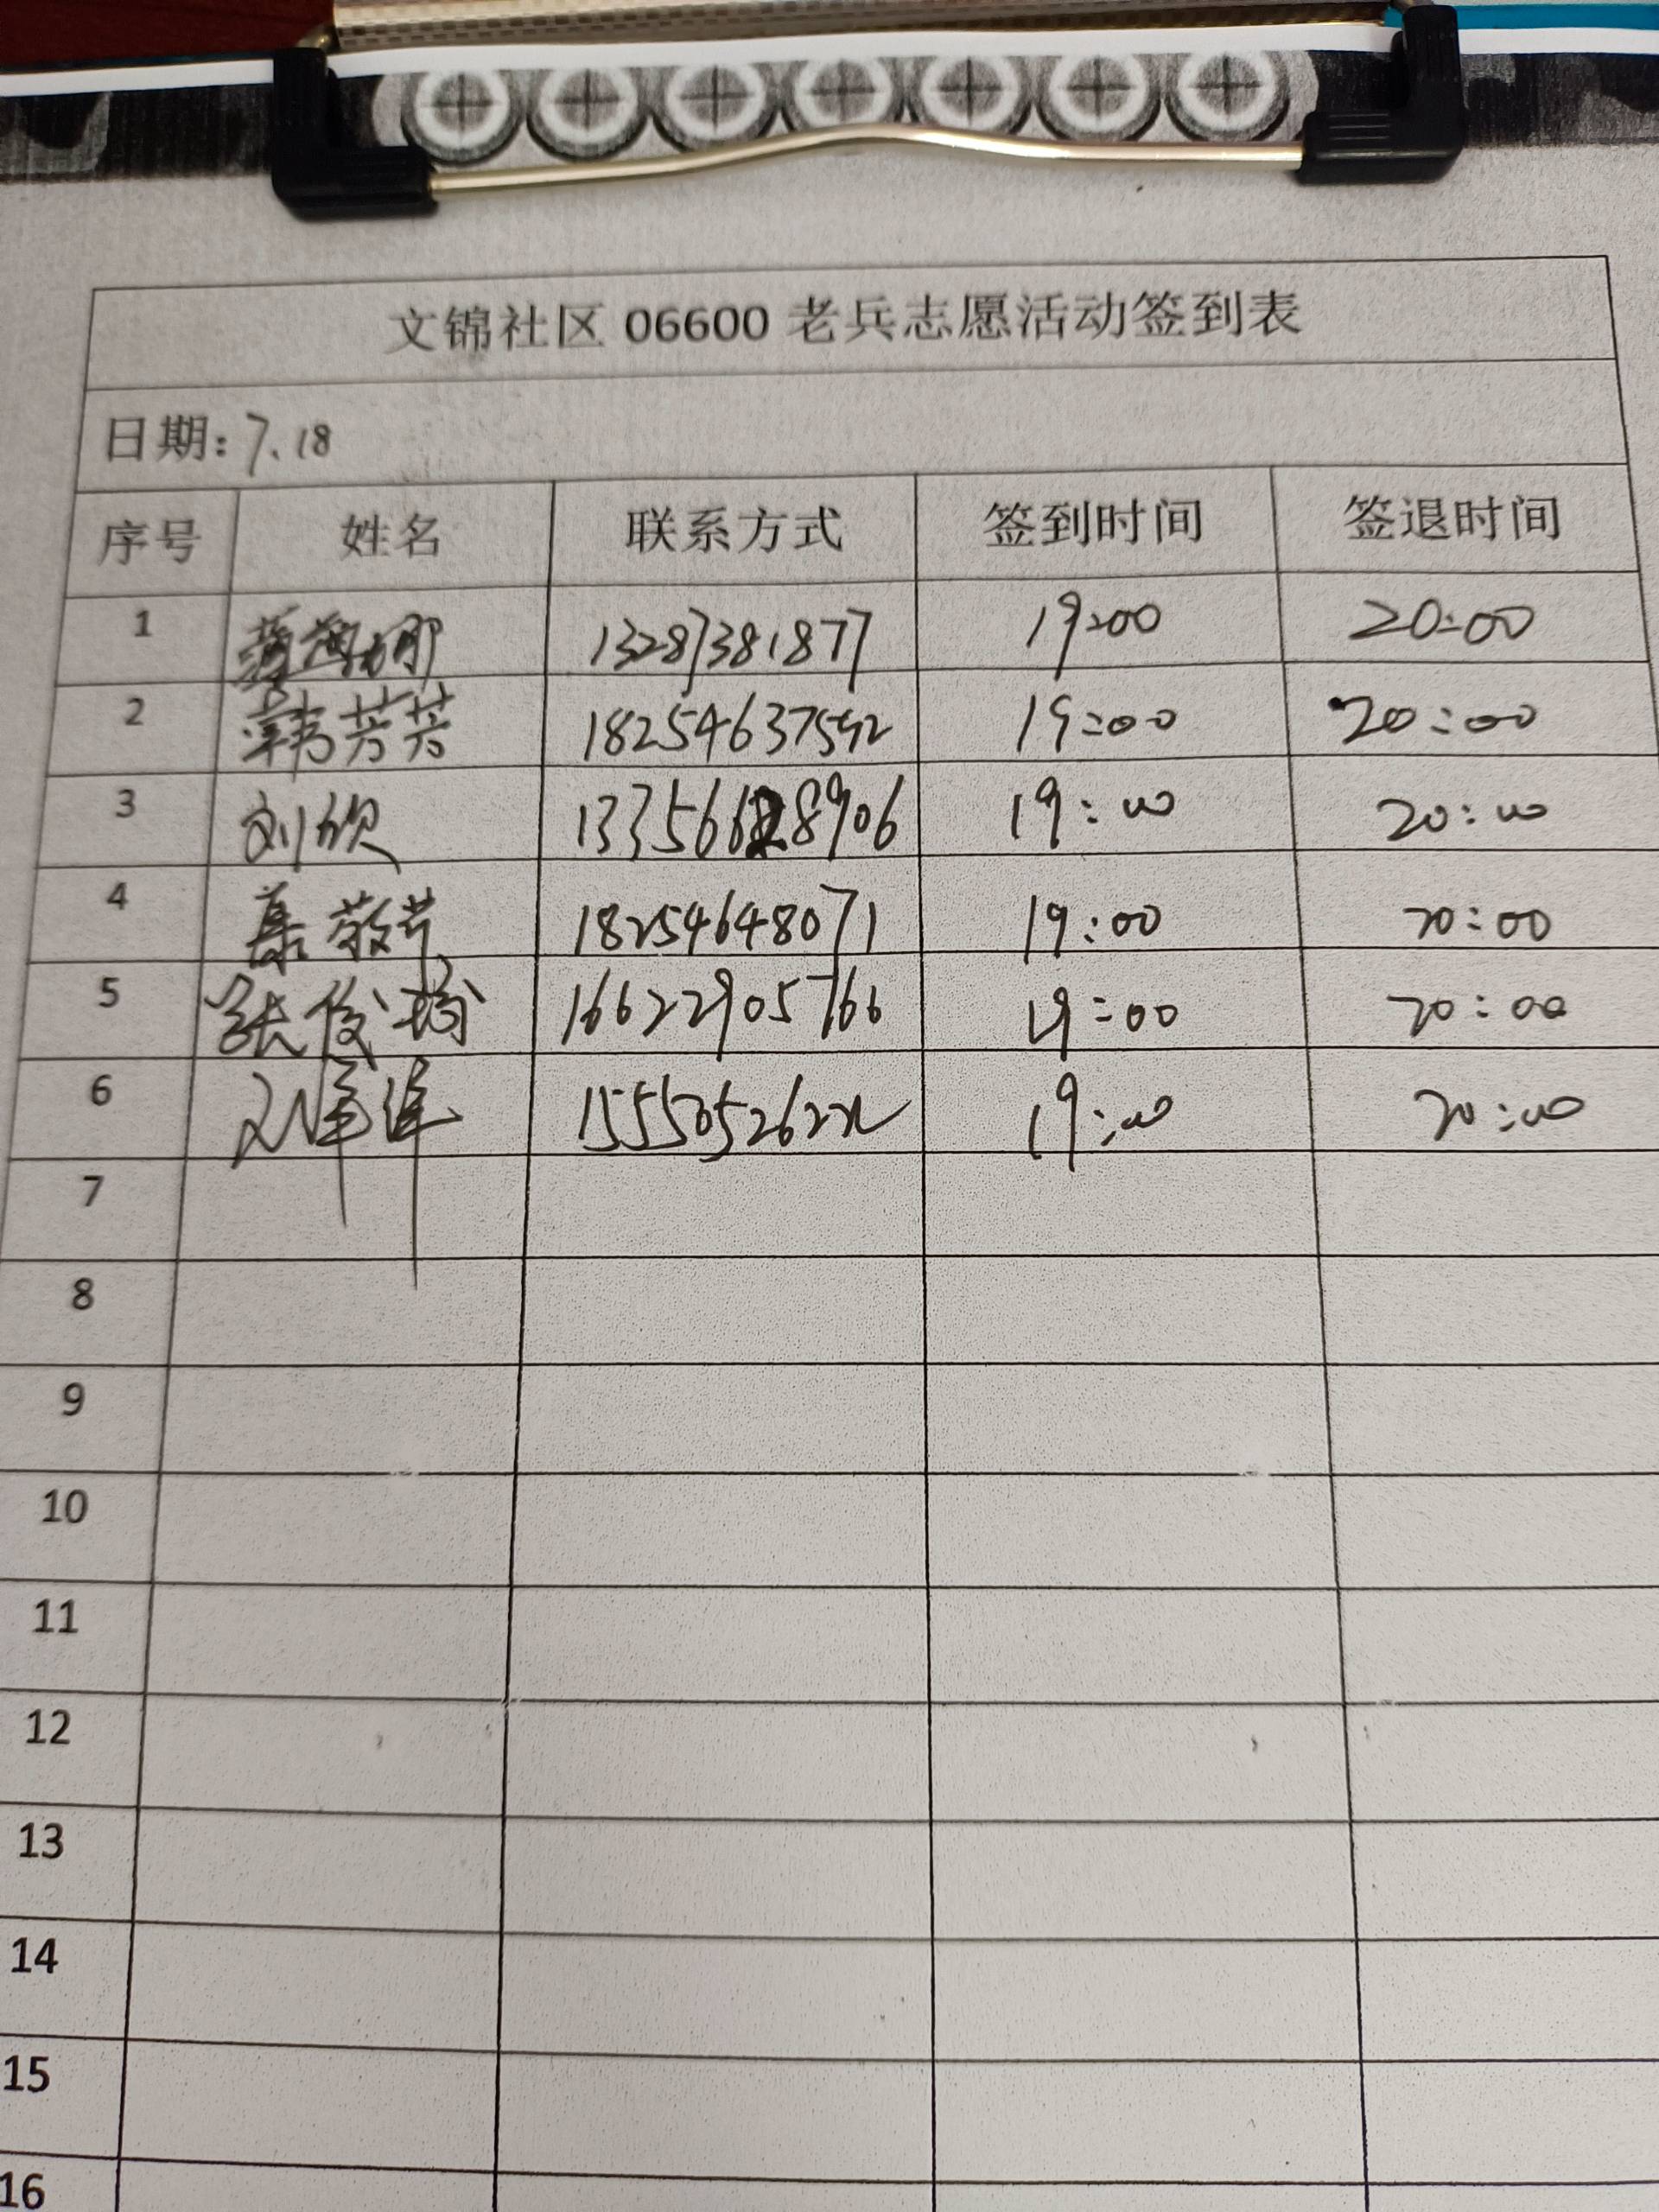 文锦社区 06600 老兵志愿活动签到表
日期: 7.18
序号 姓名 联系方式 签到时间 签退时间
1 13287381877 19:00 20:00
2 韩芳芳 18254637592 19:00 20:00
3 刘欣 19:00 20:00
4 18254648071 19:00 20:00
5 张俊 16622905766 19:00 20:00
6 19:00 20:00
7
8
9
10
11
12
13
14
15
16